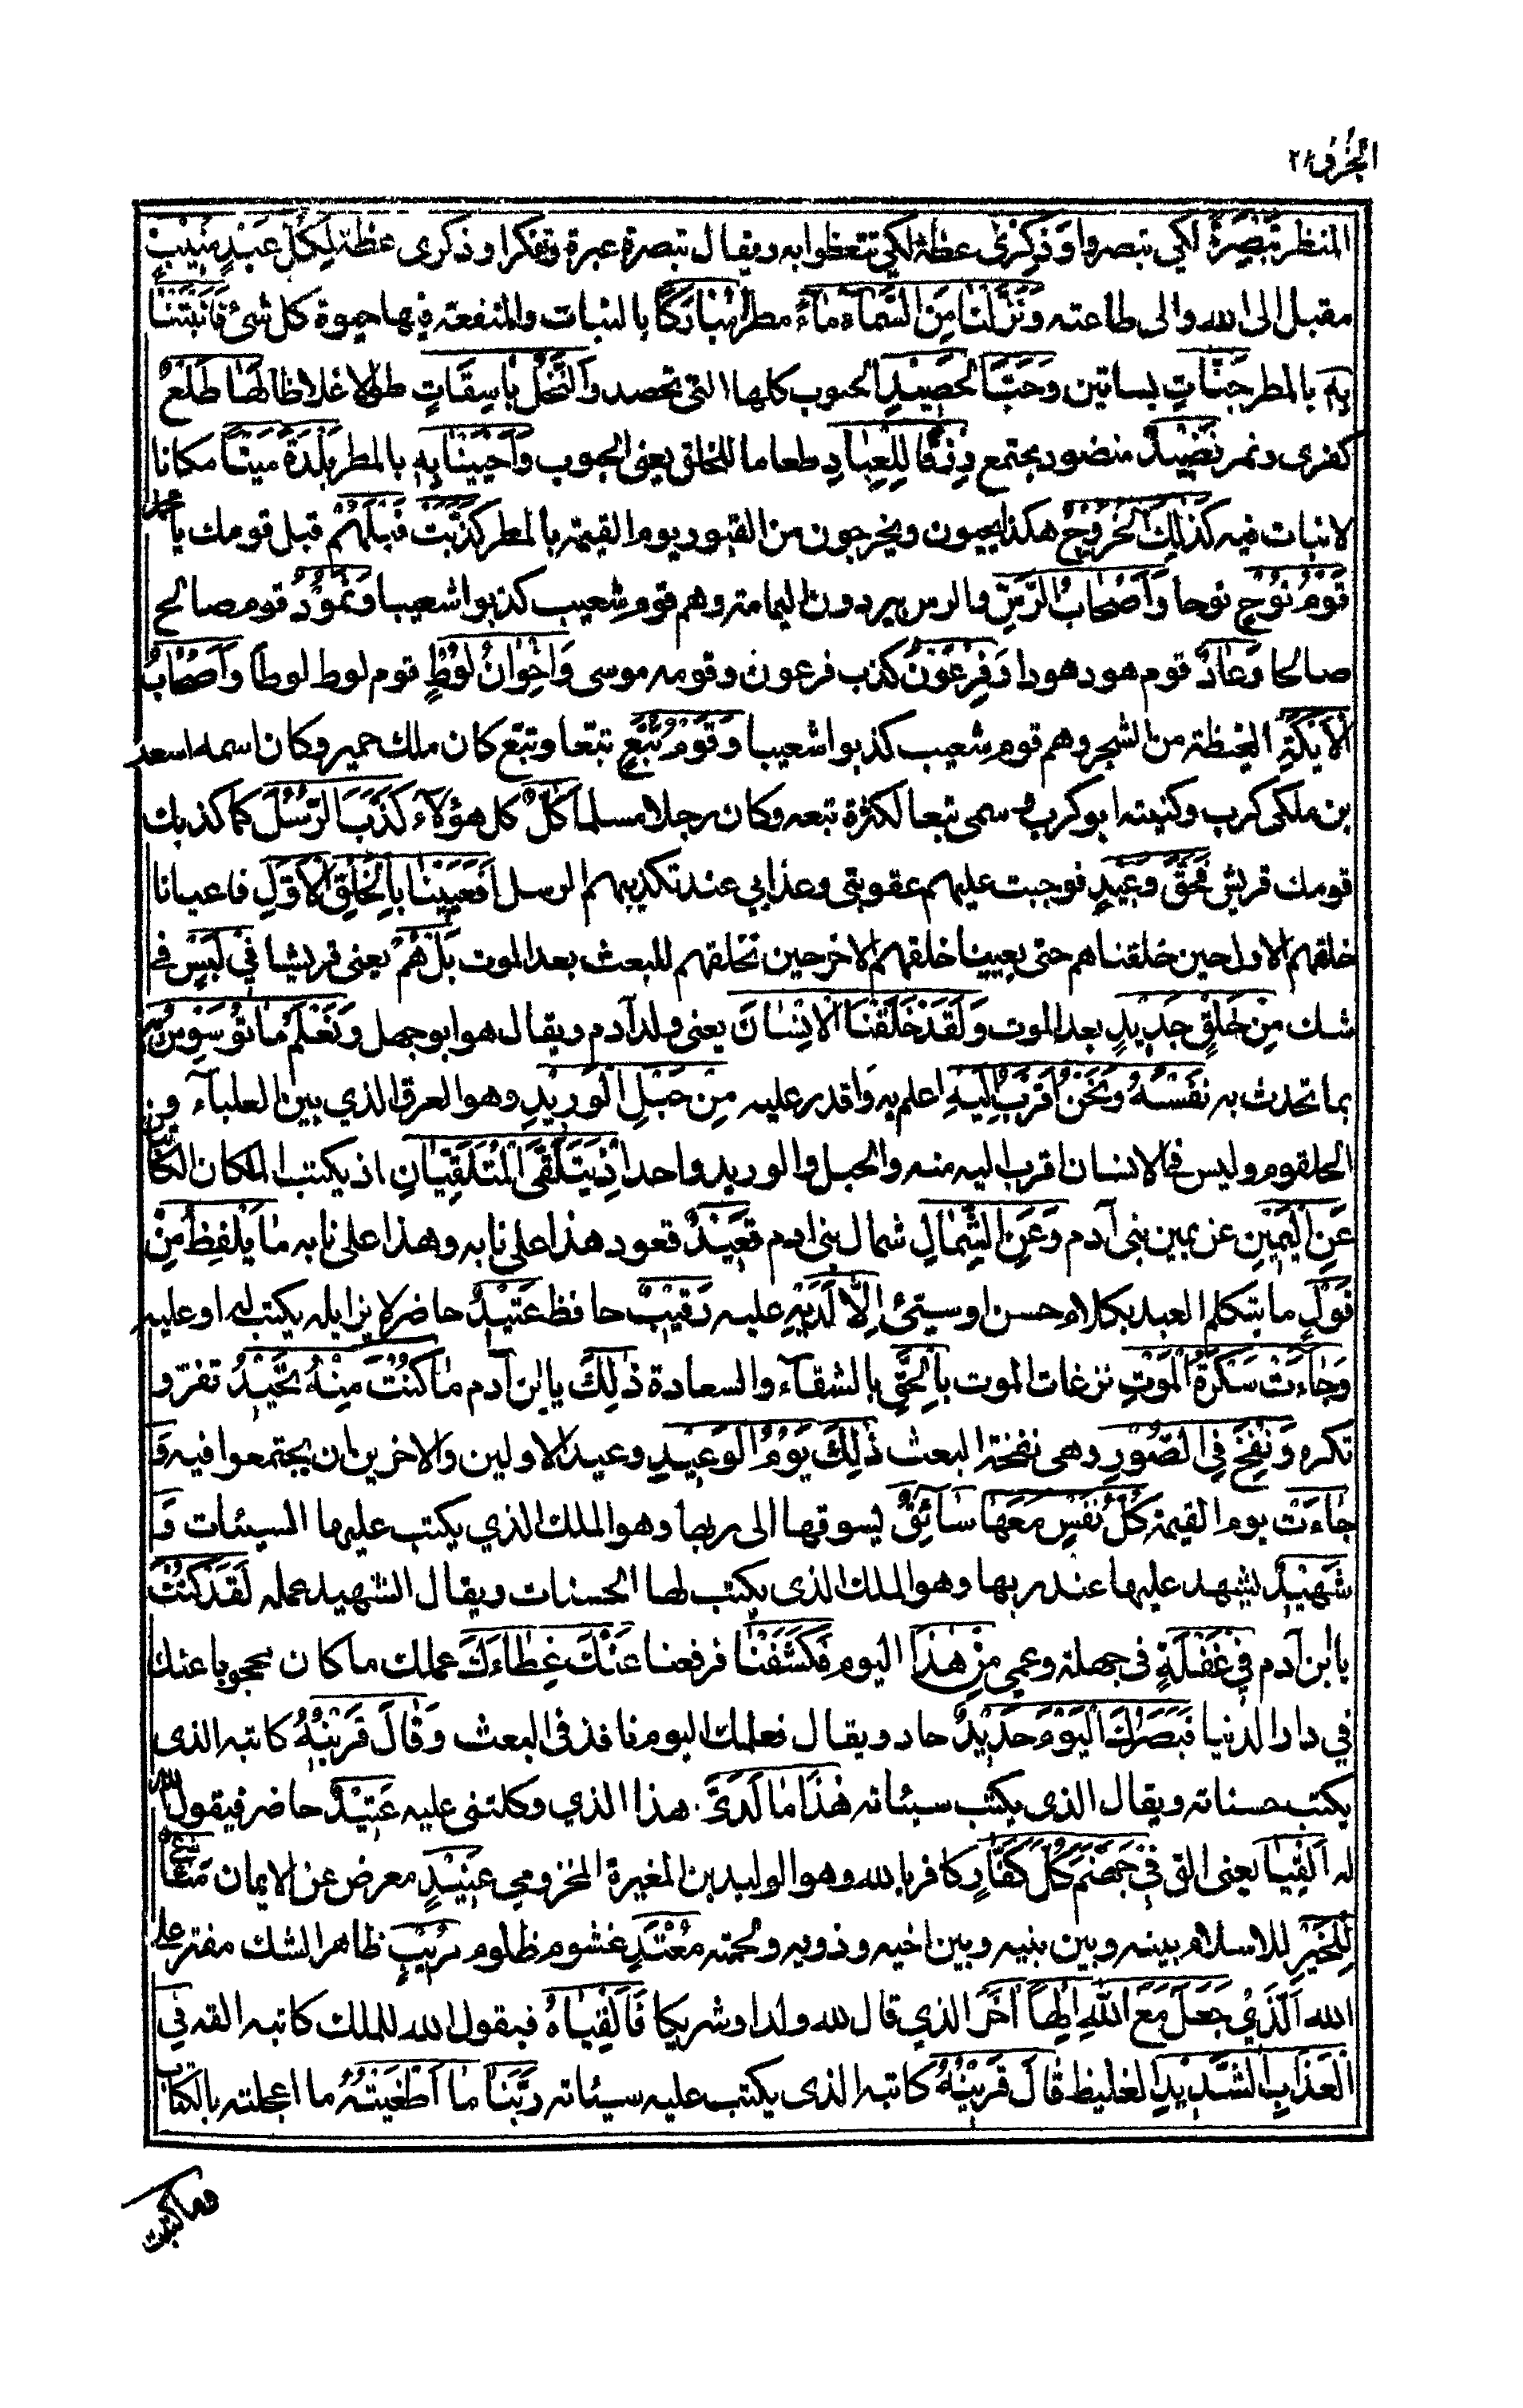 الجزؤ ٢٦
المنظر تَبْصِرَةً لكي تبصروا وَذِكْرٰى عظة لكي تتعظوا به ويقال تبصرة عبرة وتفكرا وذكرى عظة لِكُلِّ عَبْدٍ مُنِيْبٍ
مقبل الى الله والى طاعته وَنَزَّلْنَا مِنَ السَّمَآءِ مَآءً مطرا مُبَارَكًا بالنبات والمنفعة فيها حيوة كل شئ فَاَنْبَتْنَا
بِهٖ بالمطر جَنّٰاتٍ بساتين وَحَبَّ الْحَصِيْدِ الحبوب كلها التى تحصد وَالنَّخْلَ بَاسِقَاتٍ طولا غلاظا لَهٰا طَلْعٌ
كفرى وثمر نَضِيْدٌ منضود مجتمع رِزْقًا لِلْعِبٰادِ طعاما للخلق يعنى الحبوب وَاَحْيَيْنَا بِهٖ بالمطر بَلْدَةً مَيْتًا مكانا
لا نبات فيه كَذٰلِكَ الْخُرُوْجُ هكذا يحيون ويخرجون من القبور يوم القيمة بالمطر كَذَّبَتْ قَبْلَهُمْ قبل قومك يا محمد
قَوْمُ نُوْحٍ نوحا وَاَصْحَابُ الرَّسِّ والرس بير دون اليمامة وهم قوم شعيب كذبوا شعيبا وَثَمُوْدُ قوم صالح
صالحا وَعَادٌ قوم هود هودا وَفِرْعَوْنُ كذب فرعون وقومه موسى وَاِخْوَانُ لُوْطٍ قوم لوط لوطا وَاَصْحَابُ
الْاَيْكَةِ الغيظة من الشجر وهم قوم شعيب كذبوا شعيبا وَقَوْمُ تُبَّعٍ تبّعا وتبّع كان ملك حمير وكان اسمه اسعد
بن ملكى كرب وكنيته ابو كرب سمى تبعا لكثرة تبعه وكان رجلا مسلما كُلٌّ كل هؤلآء كَذَّبَ الرُّسُلَ كما كذبك
قومك قريش فَحَقَّ وَعِيْدِ فوجبت عليهم عقوبتى وعذابي عند تكذيبهم الرسل اَفَعَيِيْنَا بِالْخَلْقِ الْاَوَّلِ فاعيانا
خلقهم الاول حين خلقناهم حتى يعيينا خلقهم الاخر حين نخلقهم للبعث بعد الموت بَلْ هُمْ يعنى قريشا فِيْ لَبْسٍ فى
شك مِنْ خَلْقٍ جَدِيْدٍ بعد الموت وَلَقَدْ خَلَقْنَا الْاِنْسَانَ يعنى ولد آدم ويقال هو ابو جهل وَنَعْلَمُ مَا تُوَسْوِسُ بِهٖ
بما تحدث به نَفْسُهٗ وَنَحْنُ اَقْرَبُ اِلَيْهِ اعلم به واقدر عليه مِنْ حَبْلِ الْوَرِيْدِ وهو العرق الذي بين العلبآء وبين
الحلقوم وليس فى الانسان اقرب اليه منه والحبل والوريد واحد اِذْ يَتَلَقَّى الْمُتَلَقِّيٰانِ اذ يكتب الملكان الكاتبان
عَنِ الْيَمِيْنِ عن يمين بنى آدم وَعَنِ الشِّمَالِ شمال بنى ادم قَعِيْدٌ قعود هذا على نابه وهذا على نابه مَا يَلْفِظُ مِنْ
قَوْلٍ ما يتكلم العبد بكلام حسن او سيئ اِلَّا لَدَيْهِ عليه رَقِيْبٌ حافظ عَتِيْدٌ حاضر لا يزايله يكتب له او عليه
وَجَآءَتْ سَكْرَةُ الْمَوْتِ نزغات الموت بِالْحَقِّ بالشقآء والسعادة ذٰلِكَ يا ابن آدم مٰا كُنْتَ مِنْهُ تَحِيْدُ تفر و
تكره وَنُفِخَ فِي الصُّوْرِ وهى نفخة البعث ذٰلِكَ يَوْمُ الْوَعِيْدِ وعيد الاولين والاخرين ان يجتمعوا فيه وَ
جَآءَتْ يوم القيمة كُلُّ نَفْسٍ مَعَهَا سَآئِقٌ يسوقها الى ربها وهو الملك الذي يكتب عليها السيئات وَ
شَهِيْدٌ يشهد عليها عند ربها وهو الملك الذى يكتب لها الحسنات ويقال الشهيد عمله لَقَدْ كُنْتَ
يا ابن آدم فِيْ غَفْلَةٍ فى جهلة وعمي مِنْ هٰذَا اليوم فَكَشَفْنَا فرفعنا عَنْكَ غِطَاءَكَ عملك ما كان محجوبا عنك
في دار الدنيا فَبَصَرُكَ الْيَوْمَ حَدِيْدٌ حاد ويقال فعلمك اليوم نافذ فى البعث وَقَالَ قَرِيْنُهٗ كاتبه الذى
يكتب حسناته ويقال الذى يكتب سيئاته هٰذَا مَا لَدَيَّ هذا الذي وكلتنى عليه عَتِيْدٌ حاضر فيقول الله
له اَلْقِيَا يعنى الق فِيْ جَهَنَّمَ كُلَّ كَفَّارٍ كافر بالله وهو الوليد بن المغيرة المخزومي عَنِيْدٍ معرض عن الايمان مَنَّاعٍ
لِلْخَيْرِ للاسلام بينه وبين بنيه وبين اخيه وذويه ولحمته مُعْتَدٍ غشوم ظلوم مُرِيْبٍ ظاهر الشك مفتر على
الله اَلَّذِيْ جَعَلَ مَعَ اللّٰهِ اِلٰهًا اٰخَرَ الذي قال لله ولدا وشريكا فَاَلْقِيٰاهُ فيقول الله للملك كاتبه القه فِي
الْعَذَابِ الشَّدِيْدِ الغليظ قَالَ قَرِيْنُهٗ كاتبه الذى يكتب عليه سيئاته رَبَّنَا مَا اَطْغَيْتُهٗ ما اعجلته بالكتاب
وما كتبت